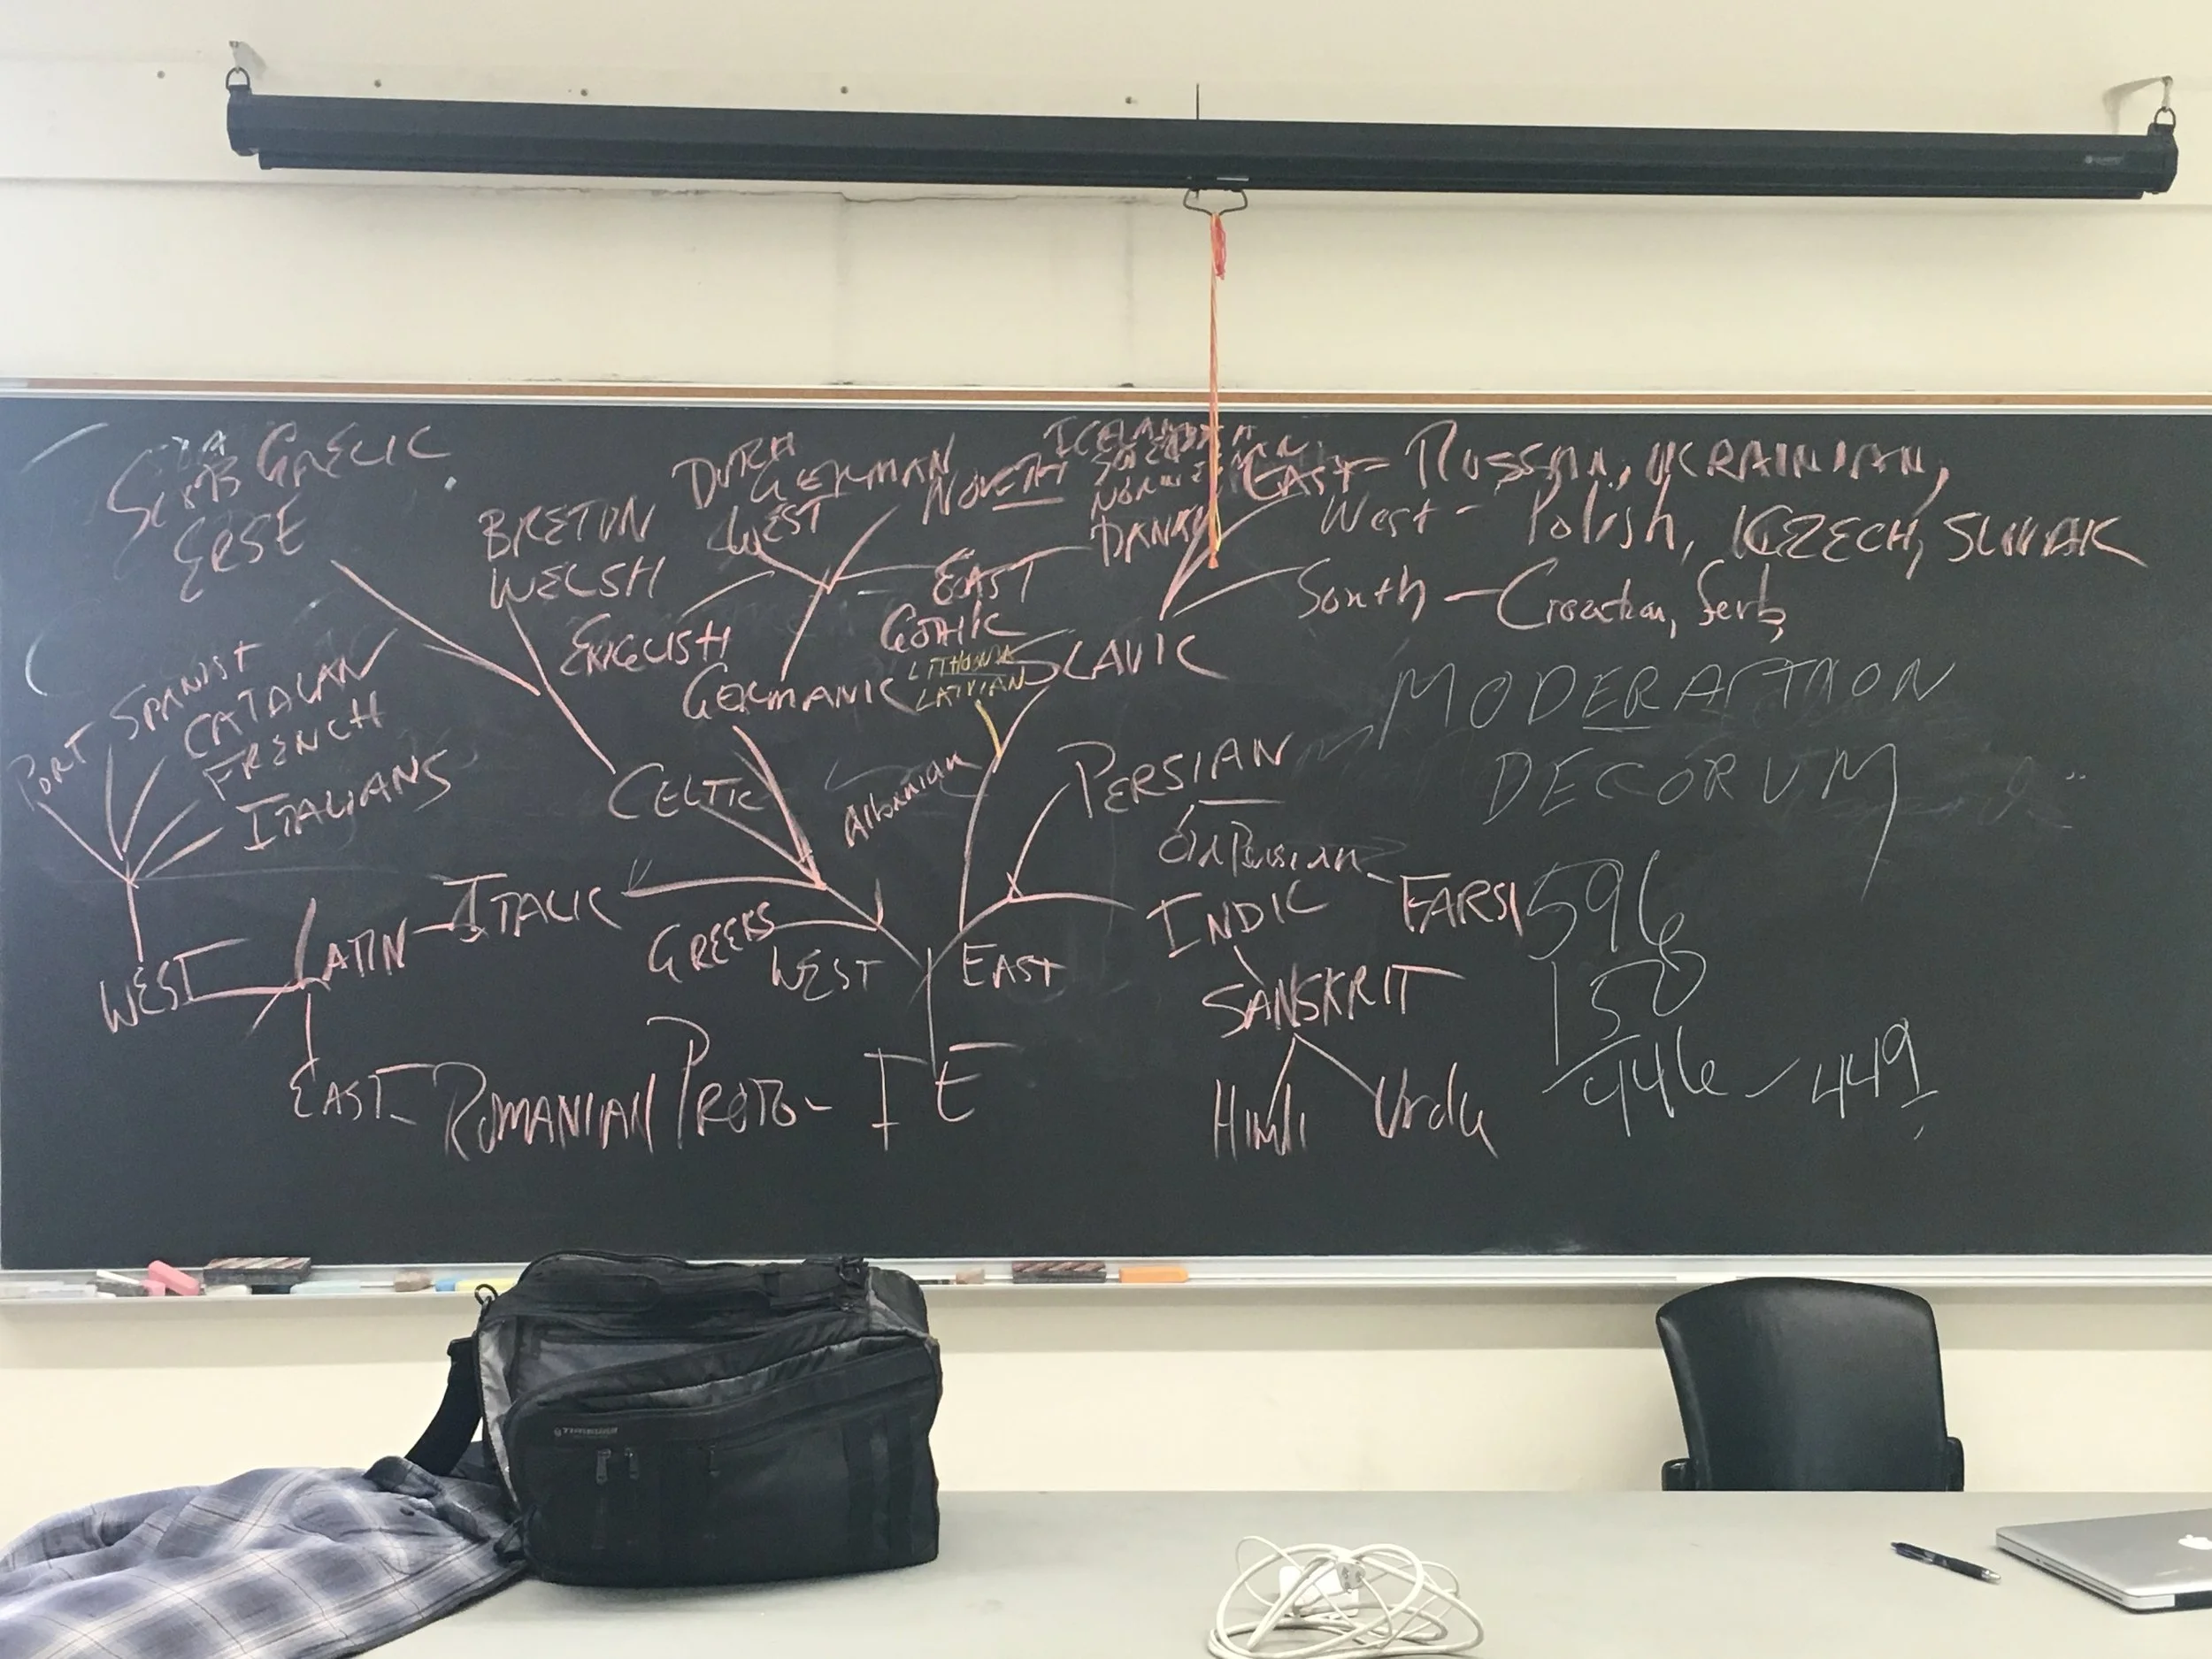 GAELIC
ERSE
BRETON
WELSH
DUTCH
GERMAN
WEST
ENGLISH
NORTH
DANISH
EAST
GOTHIC
GERMANIC
LATVIAN
SLAVIC
EAST - RUSSIAN, UKRAINIAN,
West - Polish, CZECH, SLOVAK
South - Croatian, Serb,
PORT
SPANISH
CATALAN
FRENCH
ITALIANS
MODERATION
DECORUM
CELTIC
Albanian
PERSIAN
Old Persian
FARSI
WEST
LATIN - ITALIC
GREEKS
WEST
EAST
INDIC
SANSKRIT
Hindi
Urdu
EAST - ROMANIAN
PROTO - IE
596
150
446 - 449
TIMBUK2